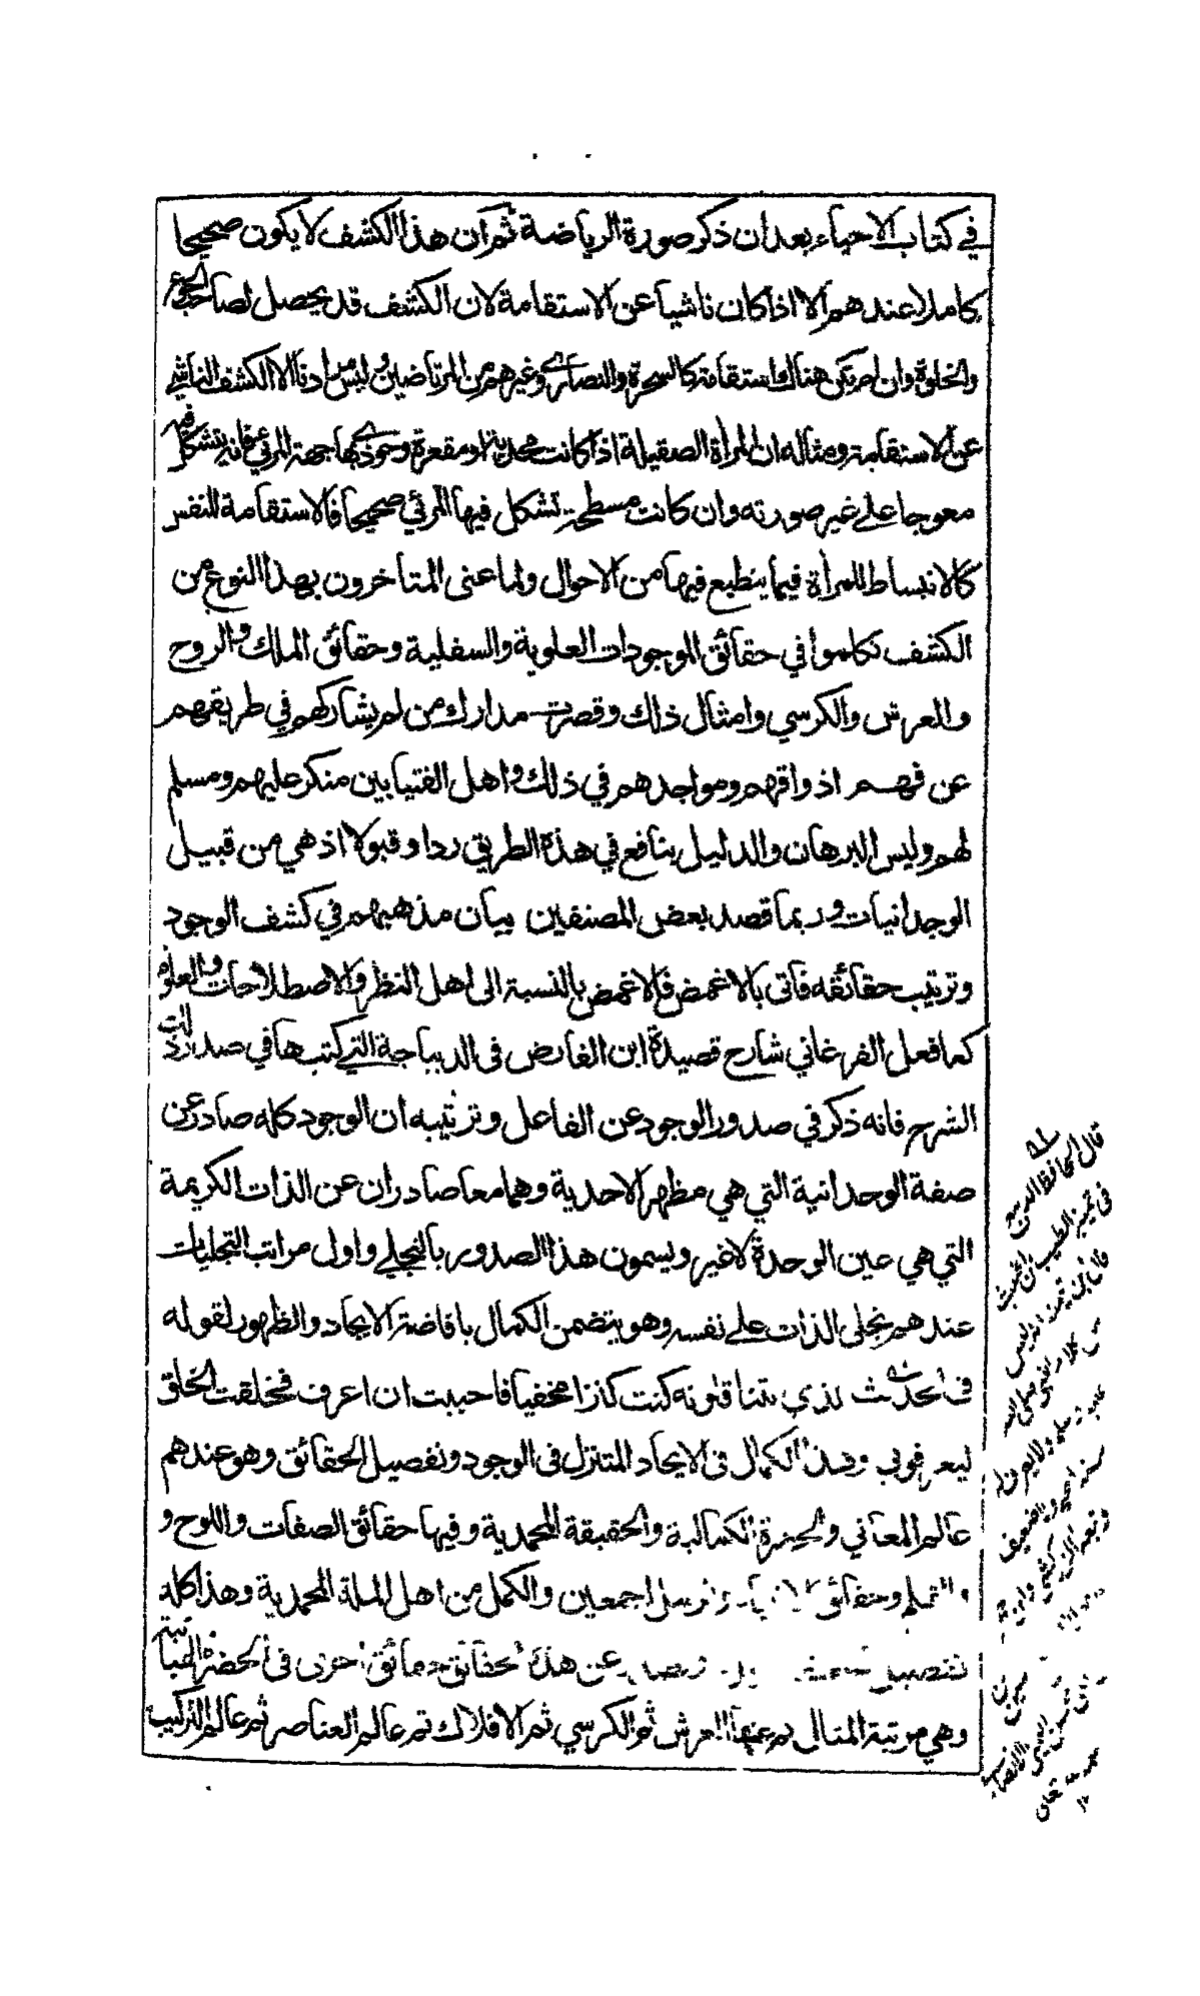 في كتاب الاحياء بعد ان ذكر صورة الرياضة ثم ان هذا الكشف لا يكون صحيحا
كاملا عندهم الا اذا كان ناشيا عن الاستقامة لان الكشف قد يحصل لصاحب الجوع
والخلوة وان لم يكن هناك استقامة كالسحرة والنصارى وغيرهم من المرتاضين وليس مرادنا الا الكشف الناشي
عن الاستقامة ومثاله ان المرأة الصقيلة اذا كانت محدبة او مقعرة وحوذي بها جهة المرئي فانه يتشكل فيه
معوجا على غير صورته وان كانت مسطحة تشكل فيها المرئي صحيحا فالاستقامة للنفس
كالانبساط للمرأة فيما ينطبع فيها من الاحوال ولما عنى المتاخرون بهذا النوع من
الكشف تكلموا في حقائق الموجودات العلوية والسفلية وحقائق الملك والروح
والعرش والكرسي وامثال ذلك وقصرت مدارك من لم يشاركهم في طريقهم
عن فهم اذواقهم ومواجدهم في ذلك واهل الفتيا بين منكر عليهم ومسلم
لهم وليس البرهان والدليل بنافع في هذه الطريق ردا وقبولا اذ هي من قبيل
الوجدانيات وربما قصد بعض المصنفين بيان مذهبهم في كشف الوجود
وترتيب حقائقه فاتى بالاغمض فالاغمض بالنسبة الى اهل النظر والاصطلاحات والعلوم
كما فعل الفرغاني شارح قصيدة ابن الفارض في الديباجة التي كتبها في صدر ذلك
الشرح فانه ذكر في صدور الوجود عن الفاعل وترتيبه ان الوجود كله صادر عن
صفة الوحدانية التي هي مظهر الاحدية وهما معا صادران عن الذات الكريمة
التي هي عين الوحدة لا غير ويسمون هذا الصدور بالتجلي واول مراتب التجليات
عندهم تجلى الذات على نفسه وهو يتضمن الكمال بافاضة الايجاد والظهور لقوله
في الحديث الذي يتناقلونه كنت كنزا مخفيا فاحببت ان اعرف فخلقت الخلق
ليعرفوني وهذا الكمال في الايجاد المتنزل في الوجود وتفصيل الحقائق وهو عندهم
عالم المعاني والحضرة الكمالية والحقيقة المحمدية وفيها حقائق الصفات واللوح و
والقلم وحقائق الانبياء والرسل اجمعين والكمل من اهل الملة المحمدية وهذا كله
تفصيل عن هذه الحقائق حقائق اخرى في الحضرة الهبائية
وهي مرتبة المثال ثم عنها العرش ثم الكرسي ثم الافلاك ثم عالم العناصر ثم عالم التركيب
قال الحافظ
في تمييز الطيب من الخبيث
قال ابن تيمية انه ليس
من كلام النبي صلى الله
عليه وسلم ولا يعرف له
سند صحيح ولا ضعيف
وتبعه الزركشي وابن
تعالى